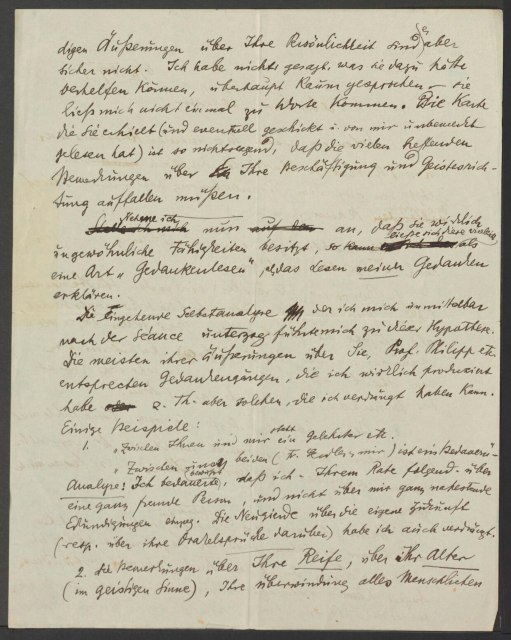 digen Äußerungen über Ihre Persönlichkeit sind es aber
sicher nicht. Ich habe nichts gesagt, was sie dazu hätte
verhelfen können, überhaupt kaum gesprochen – sie
ließ mich nicht einmal zu Worte kommen. Die Karte
die sie erhielt (und eventuell geschickt u. von mir unbemerkt
gelesen hat) ist so nichtssagend, daß die vielen treffenden
Bemerkungen über Ihre Beschäftigung und Geistesrich-
tung auffallen müssen.
Nehme ich nun an, daß sie wirklich
ungewöhnliche Fähigkeiten besitzt, so ließe sich diese vielleicht als
eine Art „Gedankenlesen", das Lesen meiner Gedanken
erklären.
Die eingehende Selbstanalyse der ich mich unmittelbar
nach der Séance unterzog führte mich zu dieser Hypothese.
Die meisten ihrer Äußerungen über Sie, Prof. Philipp etc.
entsprechen Gedankengängen, die ich wirklich produziert
habe z. Th. aber solchen, die ich verdrängt haben kann.
Einige Beispiele:
1. „Zwischen Ihnen und mir steht ein Gelehrter etc.
„Zwischen beiden (Fr. mir) ist ein Bedauern"
Analyse: Ich bedauerte, daß ich – Ihrem Rate folgend – über
eine ganz fremde Person, und nicht über mir ganz nahestehende
Erkundigungen einzog. Die Neugierde über die eigene Zukunft
(resp. über ihre Orakelsprüche darüber) habe ich auch verdrängt.
2. die Bemerkungen über Ihre Reife, über Ihr Alter
(im geistigen Sinne), Ihre Überwindung alles Menschlichen